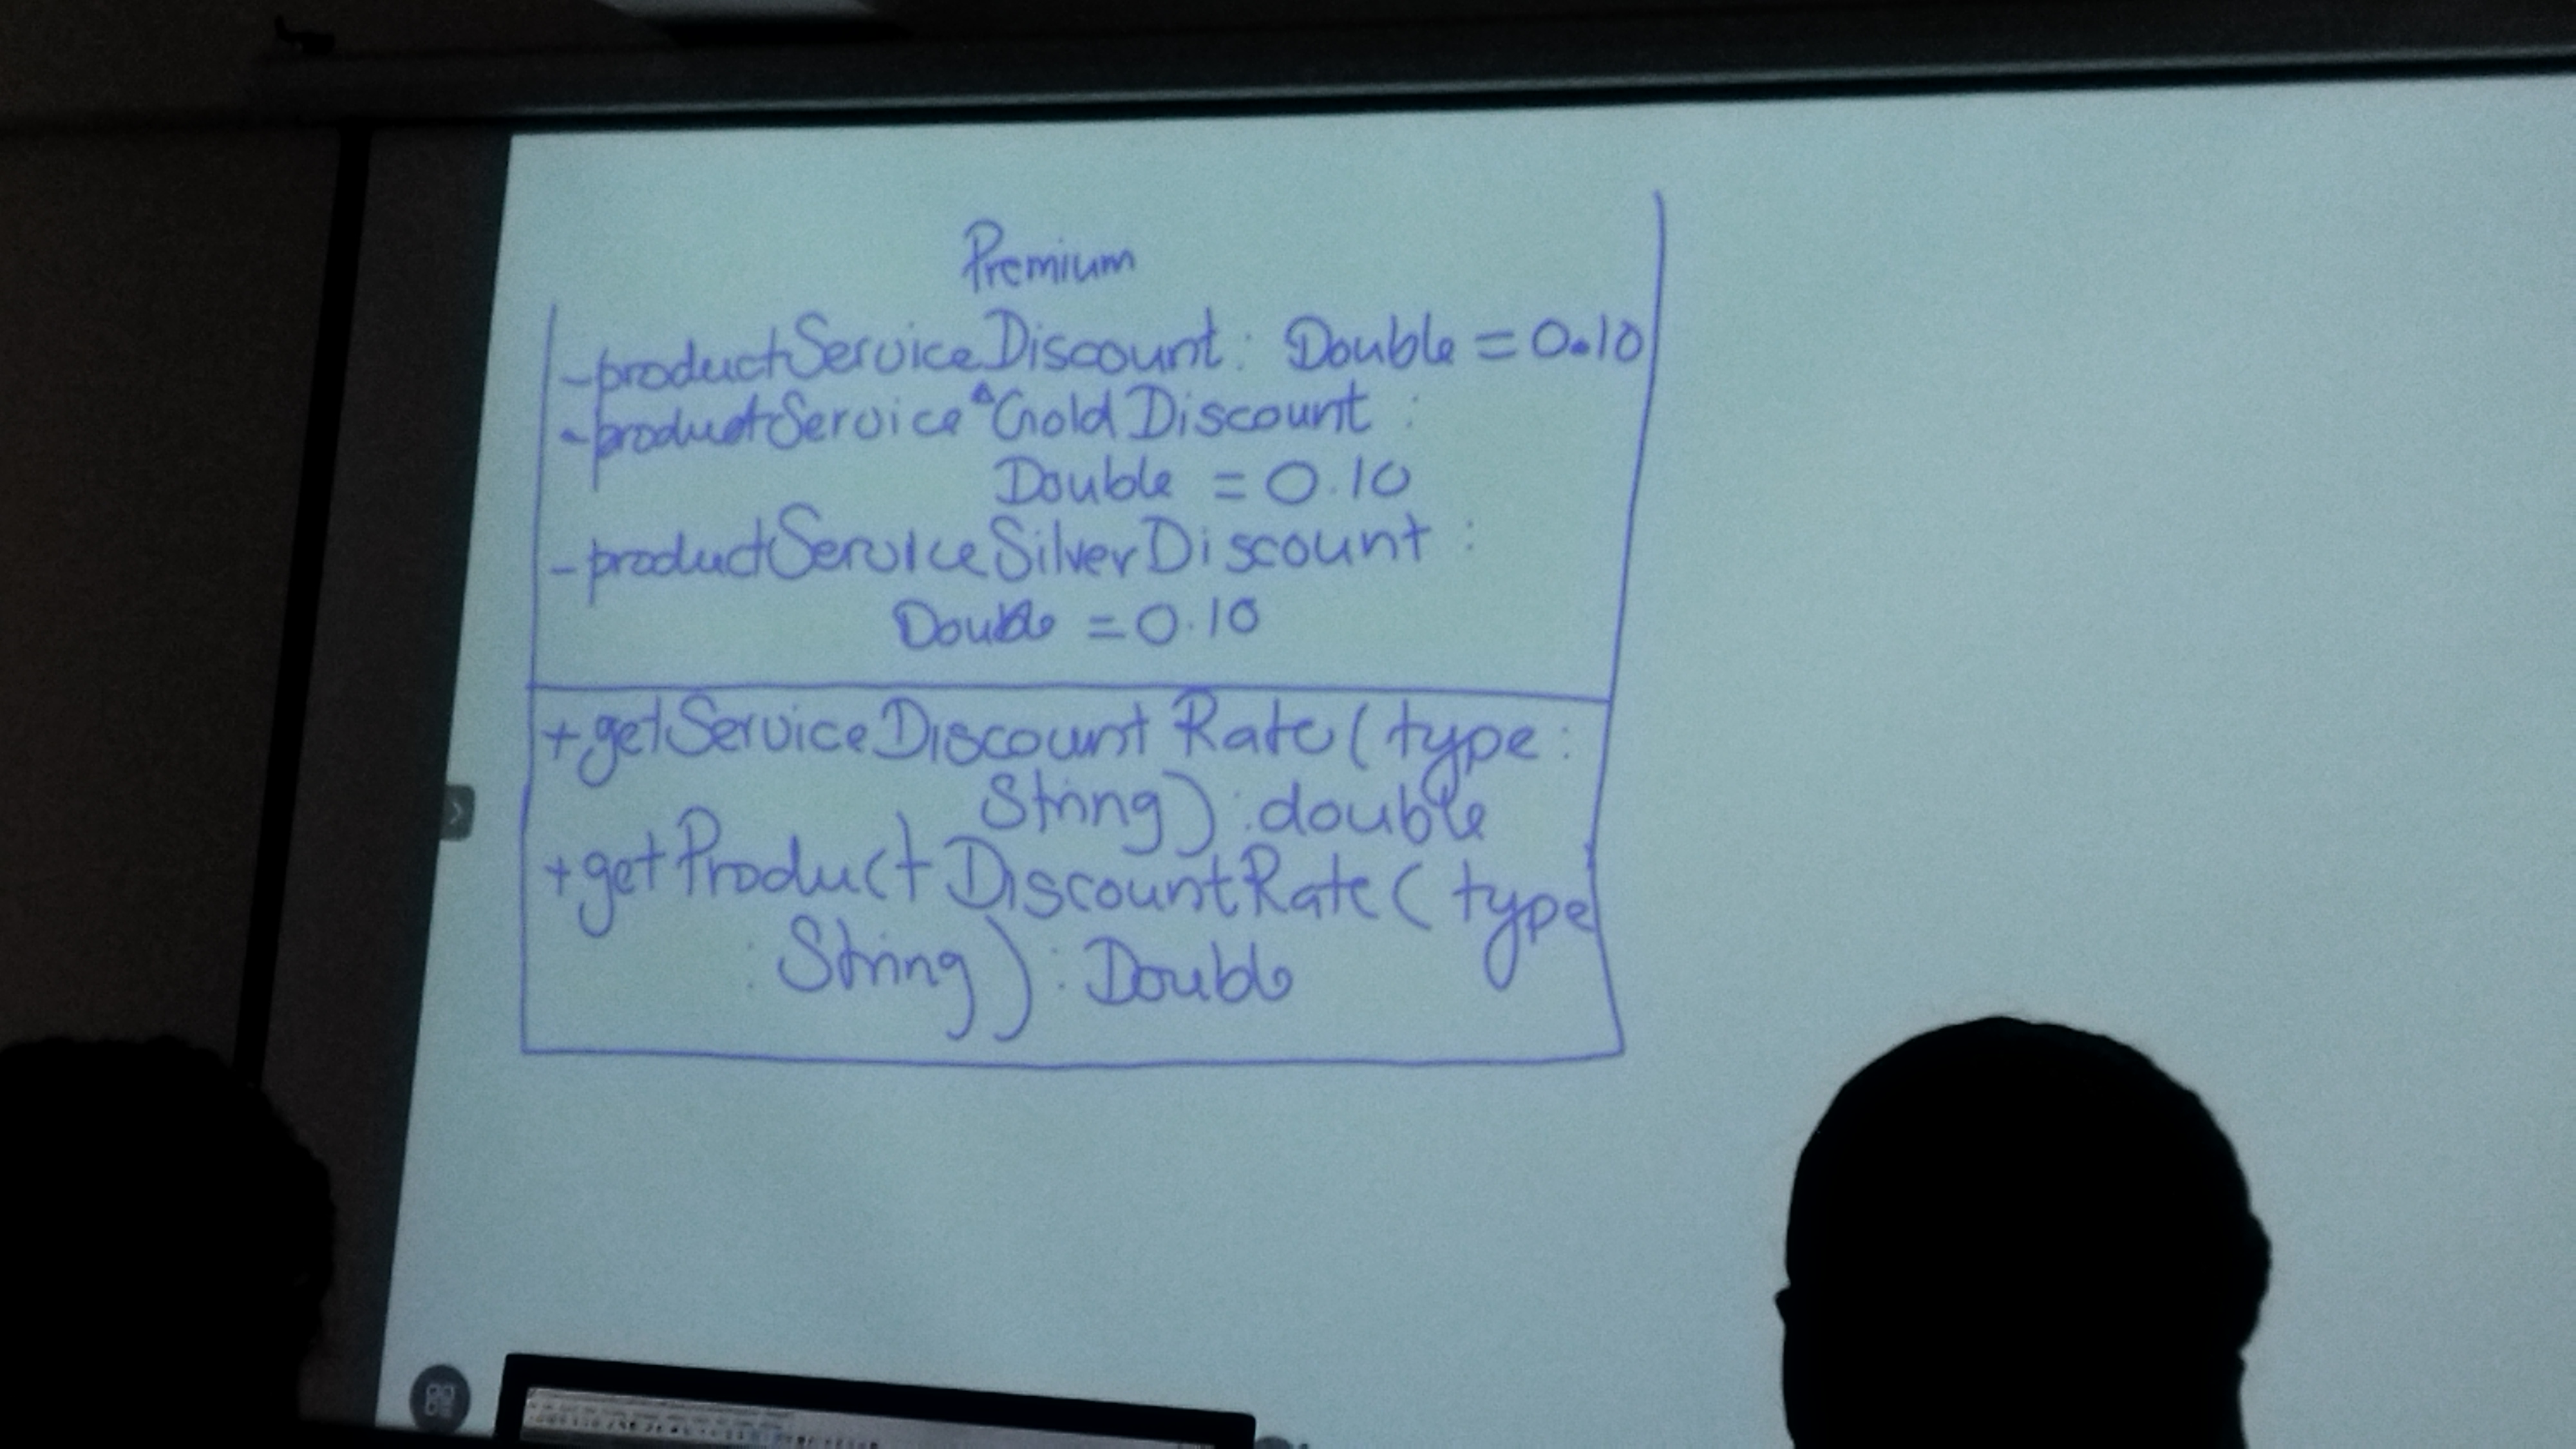 Premium
-productServiceDiscount: Double = 0.10
-productServiceGoldDiscount :
Double = 0.10
-productServiceSilverDiscount :
Double = 0.10
+getServiceDiscountRate(type:
String):double
+getProductDiscountRate(type
:String):Double